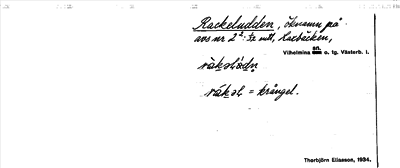 Rackeludden, öknamn på
avs nr 2² Fz mtl, Lacbäcken,
Vilhelmina sn. o. lg. Västerb. l.
råkəlùdn
råkəl = krångel.
Thorbjörn Eliasson, 1934.